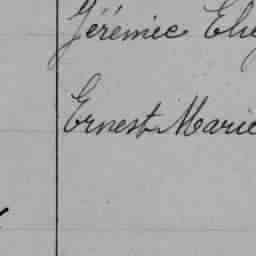 Jérémie
Ernest Marie